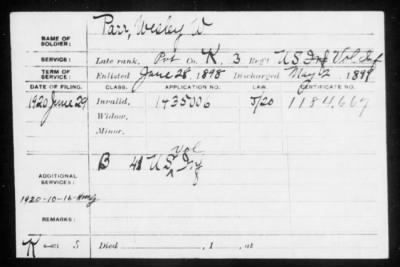 Parr, Wesley W
NAME OF SOLDIER:
SERVICE: Late rank, Pvt Co. K, 3 Reg't US Inf Vol Inf
TERM OF SERVICE: Enlisted June 28, 1898 Discharged May 2, 1899
DATE OF FILING. CLASS. APPLICATION NO. LAW. CERTIFICATE NO.
1920 June 29 Invalid, 1435006 5/20 1184667
Widow,
Minor,
ADDITIONAL SERVICES: B 41 US Vol Inf
1920-10-16
REMARKS:
K S Died , 1 , at